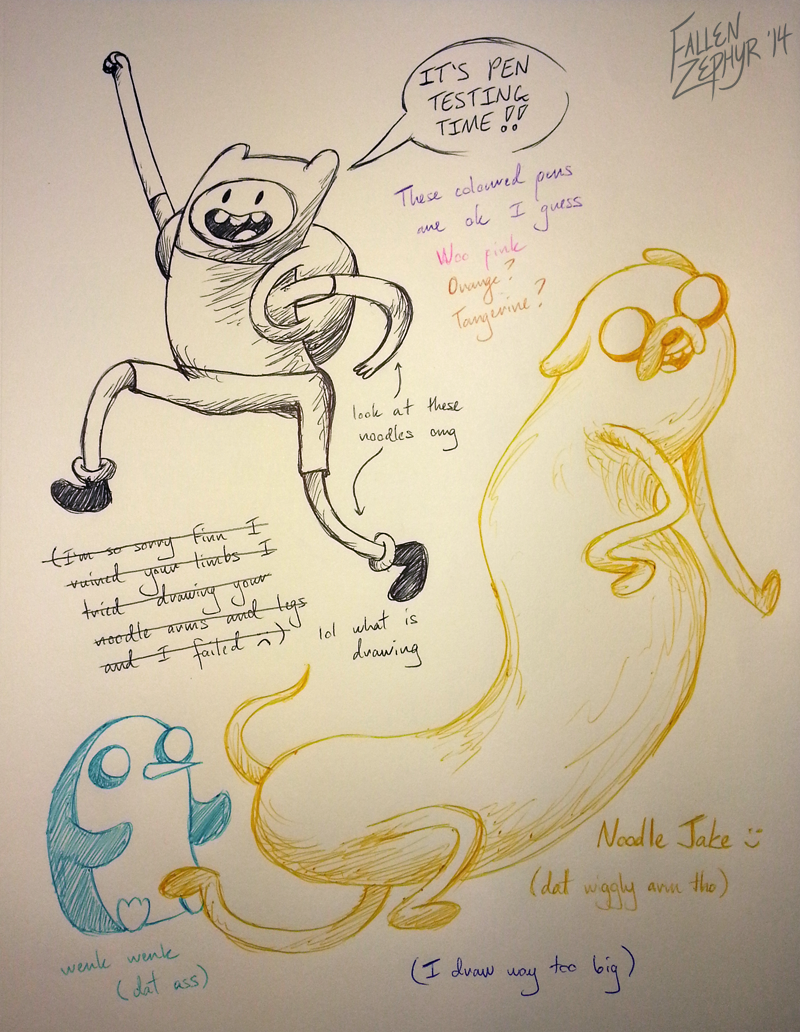 FALLEN
ZEPHYR '14
IT'S PEN
TESTING
TIME!!
These coloured pens
are ok I guess
Woo pink
Orange?
Tangerine?
look at these
noodles omg
(I'm so sorry Finn I
ruined your limbs I
tried drawing your
noodle arms and legs
and I failed :()
lol what is
drawing
Noodle Jake :)
(dat wiggly arm tho)
wenk wenk
(dat ass)
(I draw way too big)